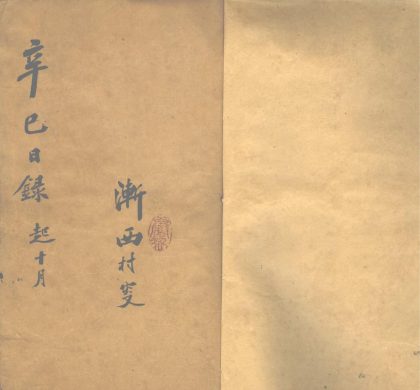 辛巳日録 起十月
漸西村叟